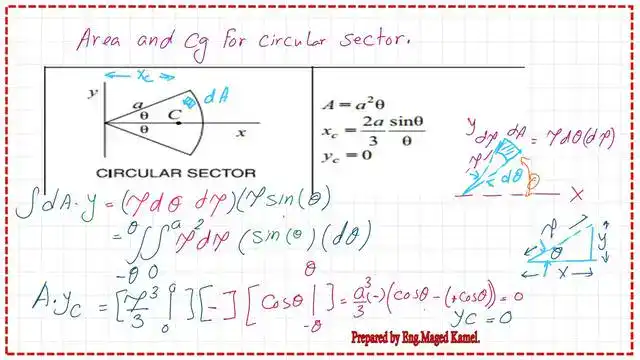 Area and Cg for circular sector.
xc
y
a
θ
θ
C
x
dA
CIRCULAR SECTOR
A = a²θ
xc = 2a/3 sinθ/θ
yc = 0
y
dρ dA = ρdθ(dρ)
ρ
dθ
θ
x
∫dA·y = (ρdθ dρ)(ρsin(θ)
= ∫∫ρ²dρ (sin(θ)(dθ)
θ a
-θ 0
ρ
θ
y
x
A·yc = [ρ³/3 |₀ᵃ] [-] [cosθ |₋θ^θ = a³/3(-)(cosθ-(+cosθ)) = 0
yc = 0
Prepared by Eng.Maged Kamel.